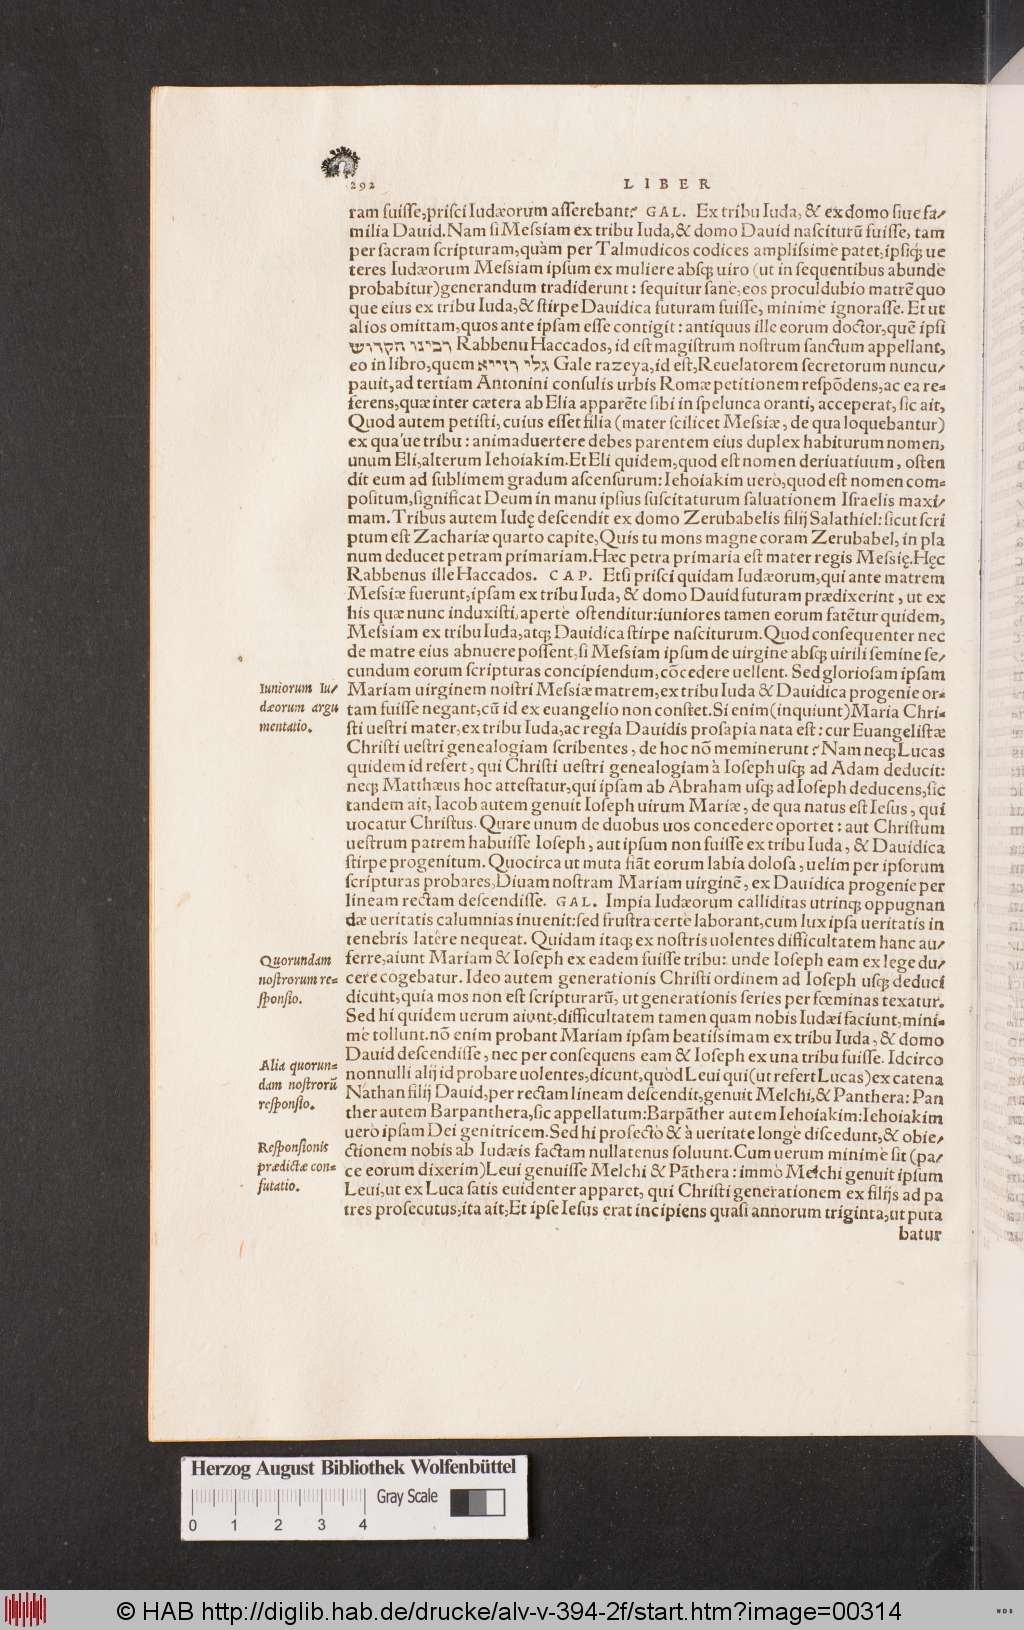 292
LIBER
ram fuiſſe, priſci Iudæorum aſſerebant? GAL. Ex tribu Iuda, & ex domo ſiue fa/
milia Dauid. Nam ſi Meſsiam ex tribu Iuda, & domo Dauid naſciturũ fuiſſe, tam
per ſacram ſcripturam, quàm per Talmudicos codices ampliſsime patet, ipſiq; ue
teres Iudæorum Meſsiam ipſum ex muliere abſq; uiro (ut in ſequentibus abunde
probabitur) generandum tradiderunt: ſequitur ſane, eos proculdubio matrẽ quo
que eius ex tribu Iuda, & ſtirpe Dauidica futuram fuiſſe, minime ignoraſſe. Et ut
alios omittam, quos ante ipſam eſſe contigit: antiquus ille eorum doctor, quẽ ipſi
רבינו הקדוש Rabbenu Haccados, id eſt magiſtrum noſtrum ſanctum appellant,
eo in libro, quem גלי רזייא Gale razeya, id eſt, Reuelatorem ſecretorum nuncu/
pauit, ad tertiam Antonini conſulis urbis Romæ petitionem reſpõdens, ac ea re=
ferens, quæ inter cætera ab Elia apparẽte ſibi in ſpelunca oranti, acceperat, ſic ait,
Quod autem petiſti, cuius eſſet filia (mater ſcilicet Meſsiæ, de qua loquebantur)
ex qua'ue tribu: animaduertere debes parentem eius duplex habiturum nomen,
unum Eli, alterum Iehoiakim. Et Eli quidem, quod eſt nomen deriuatiuum, oſten
dit eum ad ſublimem gradum aſcenſurum: Iehoiakim uero, quod eſt nomen com=
poſitum, ſignificat Deum in manu ipſius ſuſcitaturum ſaluationem Iſraelis maxi/
mam. Tribus autem Iudę deſcendit ex domo Zerubabelis filij Salathiel: ſicut ſcri
ptum eſt Zachariæ quarto capite, Quis tu mons magne coram Zerubabel, in pla
num deducet petram primariam. Hæc petra primaria eſt mater regis Meſsię. Hęc
Rabbenus ille Haccados. CAP. Etſi priſci quidam Iudæorum, qui ante matrem
Meſsiæ fuerunt, ipſam ex tribu Iuda, & domo Dauid futuram prædixerint, ut ex
his quæ nunc induxiſti, aperte oſtenditur: iuniores tamen eorum fatẽtur quidem,
Meſsiam ex tribu Iuda, atq; Dauidica ſtirpe naſciturum. Quod conſequenter nec
de matre eius abnuere poſſent, ſi Meſsiam ipſum de uirgine abſq; uirili ſemine ſe/
cundum eorum ſcripturas concipiendum, cõcedere uellent. Sed glorioſam ipſam
Iuniorum Iu/
dæorum argu
mentatio.
Mariam uirginem noſtri Meſsiæ matrem, ex tribu Iuda & Dauidica progenie or=
tam fuiſſe negant, cũ id ex euangelio non conſtet. Si enim (inquiunt) Maria Chri=
ſti ueſtri mater, ex tribu Iuda, ac regia Dauidis proſapia nata eſt: cur Euangeliſtæ
Chriſti ueſtri genealogiam ſcribentes, de hoc nõ meminerunt? Nam neq; Lucas
quidem id refert, qui Chriſti ueſtri genealogiam à Ioſeph uſq; ad Adam deducit:
neq; Matthæus hoc atteſtatur, qui ipſam ab Abraham uſq; ad Ioſeph deducens, ſic
tandem ait, Iacob autem genuit Ioſeph uirum Mariæ, de qua natus eſt Ieſus, qui
uocatur Chriſtus. Quare unum de duobus uos concedere oportet: aut Chriſtum
ueſtrum patrem habuiſſe Ioſeph, aut ipſum non fuiſſe ex tribu Iuda, & Dauidica
ſtirpe progenitum. Quocirca ut muta fiãt eorum labia doloſa, uelim per ipſorum
ſcripturas probares, Diuam noſtram Mariam uirginẽ, ex Dauidica progenie per
lineam rectam deſcendiſſe. GAL. Impia Iudæorum calliditas utrinq; oppugnan
dæ ueritatis calumnias inuenit: ſed fruſtra certe laborant, cum lux ipſa ueritatis in
tenebris latere nequeat. Quidam itaq; ex noſtris uolentes difficultatem hanc au/
Quorundam
noſtrorum re=
ſponſio.
ferre, aiunt Mariam & Ioſeph ex eadem fuiſſe tribu: unde Ioſeph eam ex lege du/
cere cogebatur. Ideo autem generationis Chriſti ordinem ad Ioſeph uſq; deduci
dicunt, quia mos non eſt ſcripturarũ, ut generationis ſeries per fœminas texatur.
Sed hi quidem uerum aiunt, difficultatem tamen quam nobis Iudæi faciunt, mini=
me tollunt. nõ enim probant Mariam ipſam beatiſsimam ex tribu Iuda, & domo
Dauid deſcendiſſe, nec per conſequens eam & Ioſeph ex una tribu fuiſſe. Idcirco
Alia quorun=
dam noſtrorũ
reſponſio.
nonnulli alij id probare uolentes, dicunt, quòd Leui qui (ut refert Lucas) ex catena
Nathan filij Dauid, per rectam lineam deſcendit, genuit Melchi, & Panthera: Pan
ther autem Barpanthera, ſic appellatum: Barpãther autem Iehoiakim: Iehoiakim
uero ipſam Dei genitricem. Sed hi profecto & à ueritate longe diſcedunt, & obie/
Reſponſionis
prædictæ con=
futatio.
ctionem nobis ab Iudæis factam nullatenus ſoluunt. Cum uerum minime ſit (pa/
ce eorum dixerim) Leui genuiſſe Melchi & Pãthera: immo Melchi genuit ipſum
Leui, ut ex Luca ſatis euidenter apparet, qui Chriſti generationem ex filijs ad pa
tres proſecutus, ita ait, Et ipſe Ieſus erat incipiens quaſi annorum triginta, ut puta
batur
Herzog August Bibliothek Wolfenbüttel
Gray Scale
0 1 2 3 4
© HAB http://diglib.hab.de/drucke/alv-v-394-2f/start.htm?image=00314